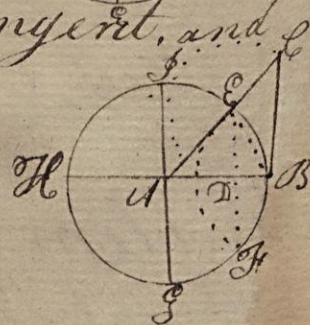 ngent, and
C
I
E
H
A
D
B
F
G